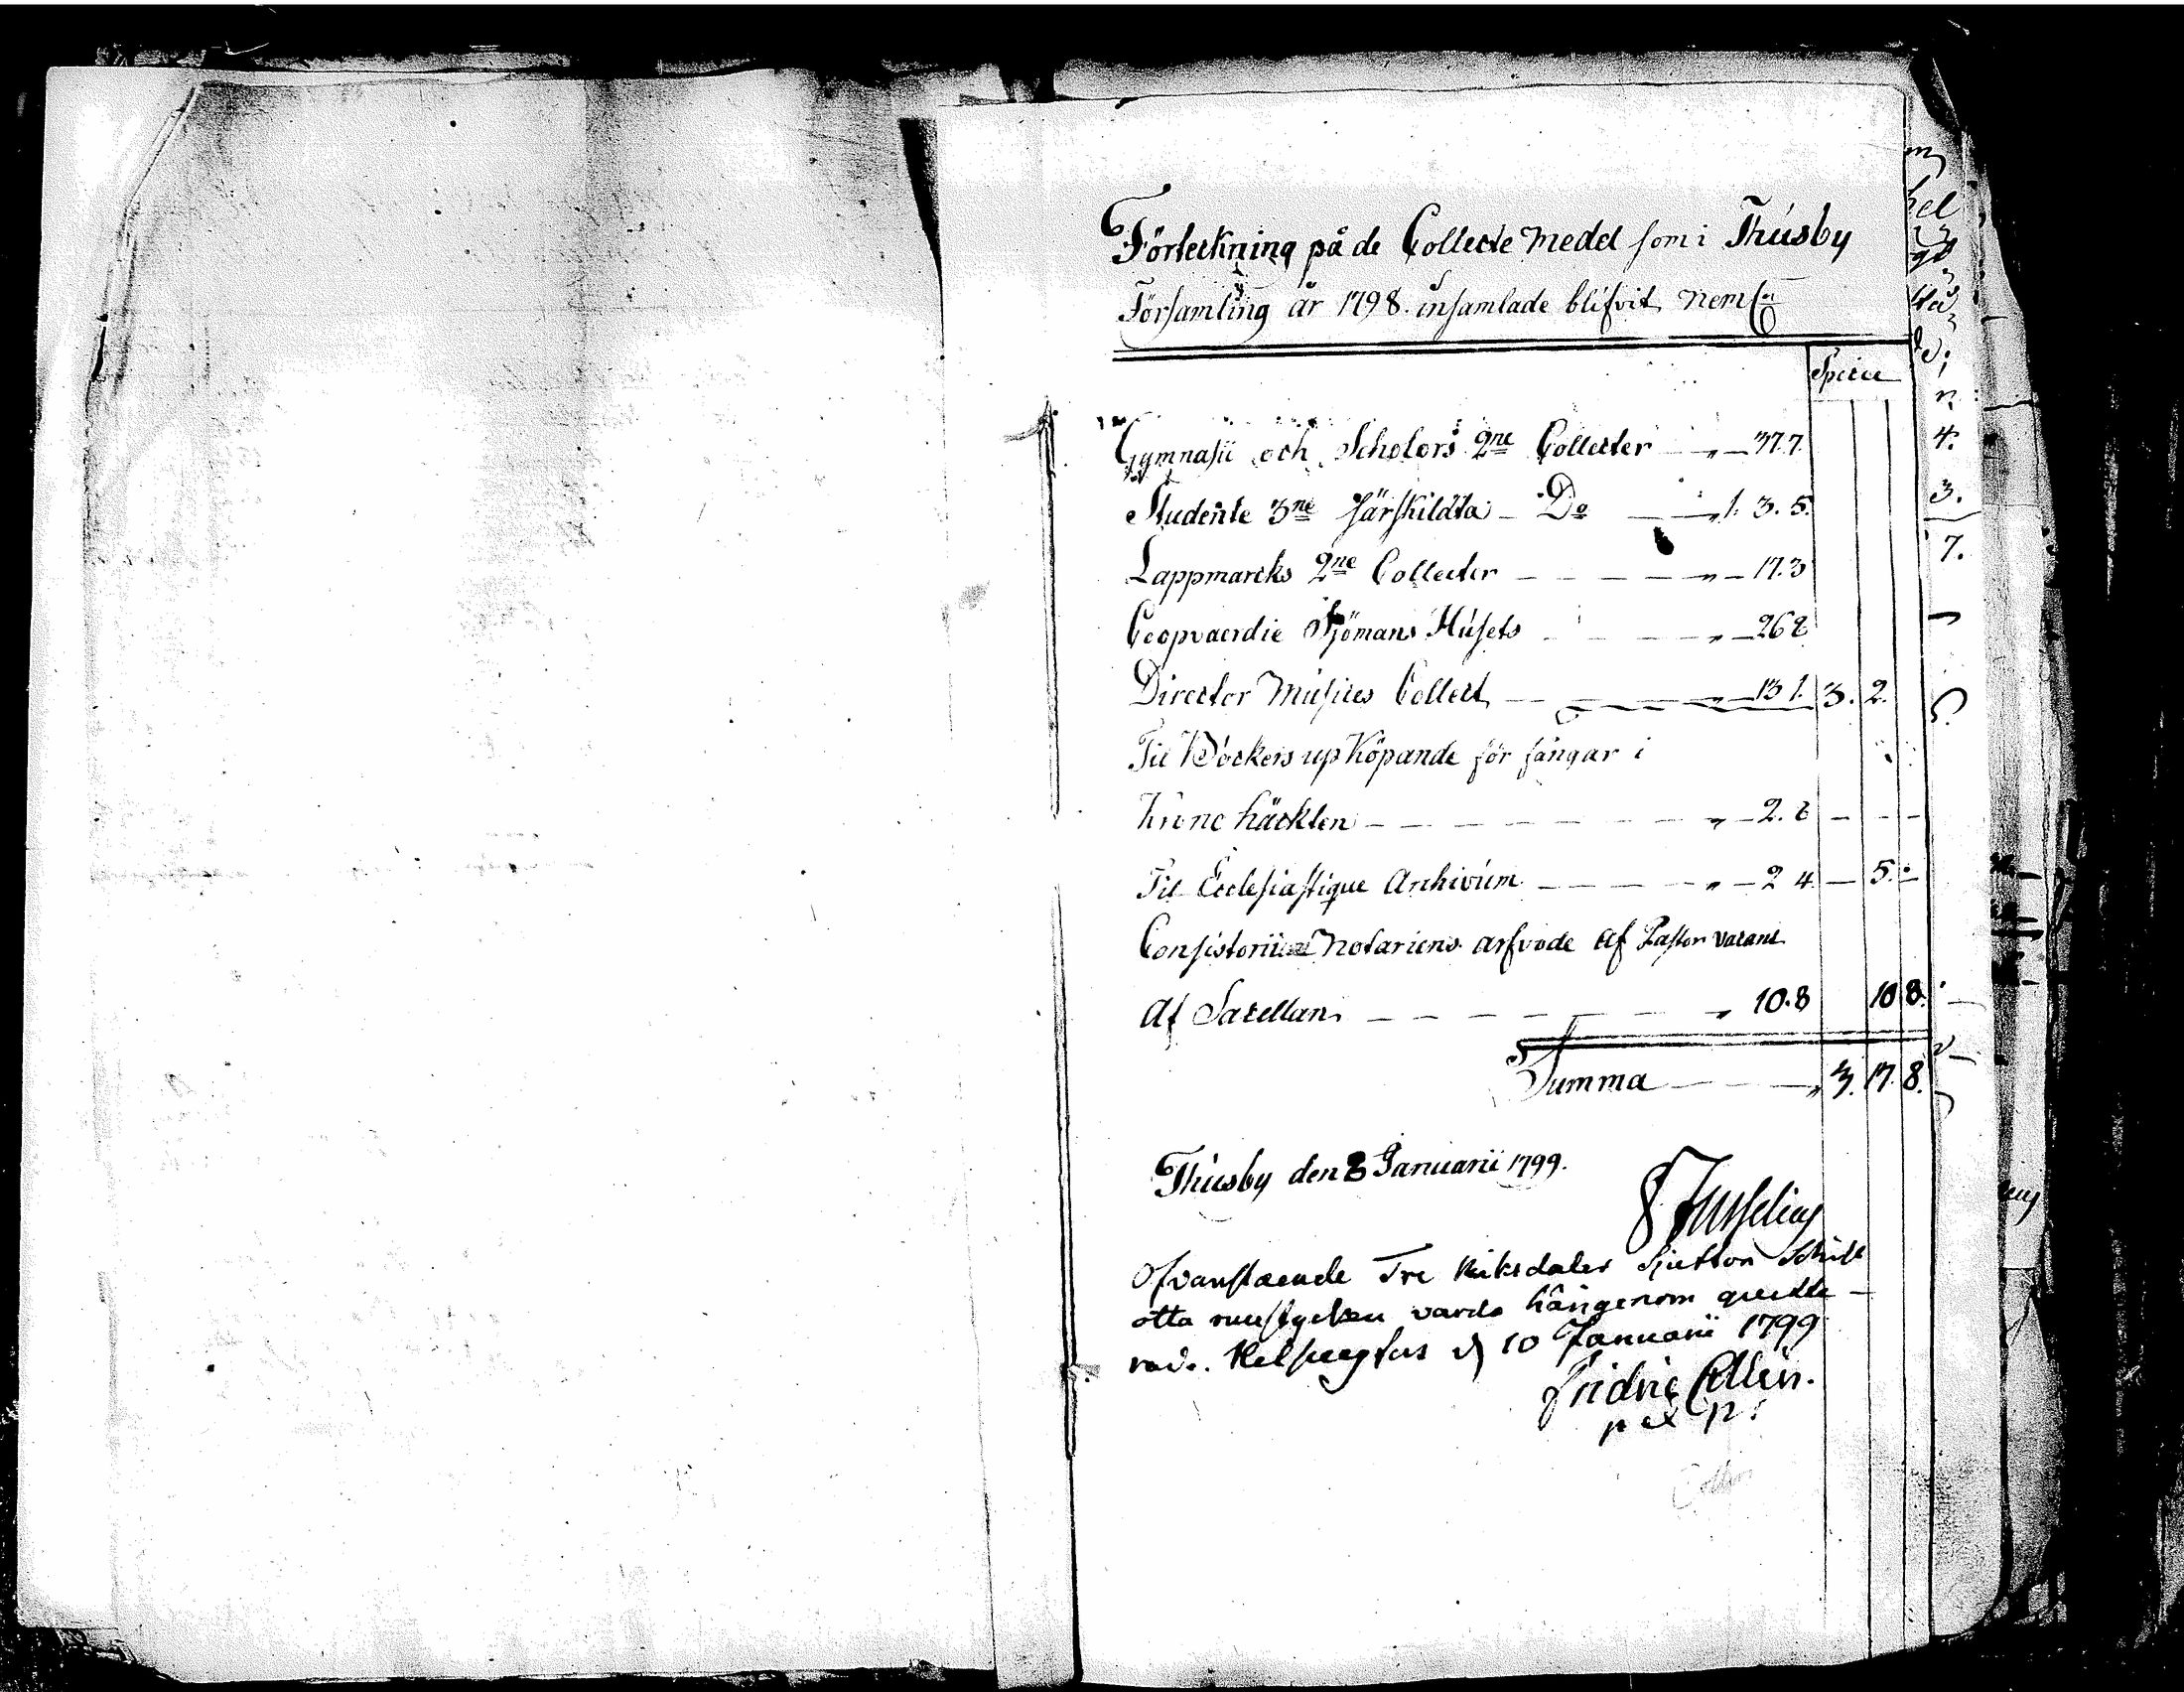 Förteckning på de Collecte medel som i Thusby
Församling år 1798. insamlade blifvit nemln
Specie
Gymnasii och Scholors 2ne Collecter — „ — 37.7.
Studente 3ne särskildta — Do — „ 1. 3. 5.
Lappmarcks 2ne Collecter — — — — „ — 17.3
Coopvaerdie Sjömans Husets — — — „ — 26 8
Director Musices Collect — — — „ — 13 1. 3. 2.
Til Böckers upköpande för fångar i
Krono häckten — — — — — — „ — 2. 8 — — —
Til Ecclesiastique Archivum — — — „ — 2 4 — 5. —
Consistorii Notariens arfvode af Pastor vacant
Af Sacellan — — — — — — „ 10.8 10 8.
Summa — — — „ 3. 17. 8.
Thusby den 8 Januarii 1799.
Ofvanstaende Tre Riksdaler Sjutton Schill
otta runstycken varda härigenom quitte-
rade. Helsingfors d 10 Januarii 1799
Fridric Collin.